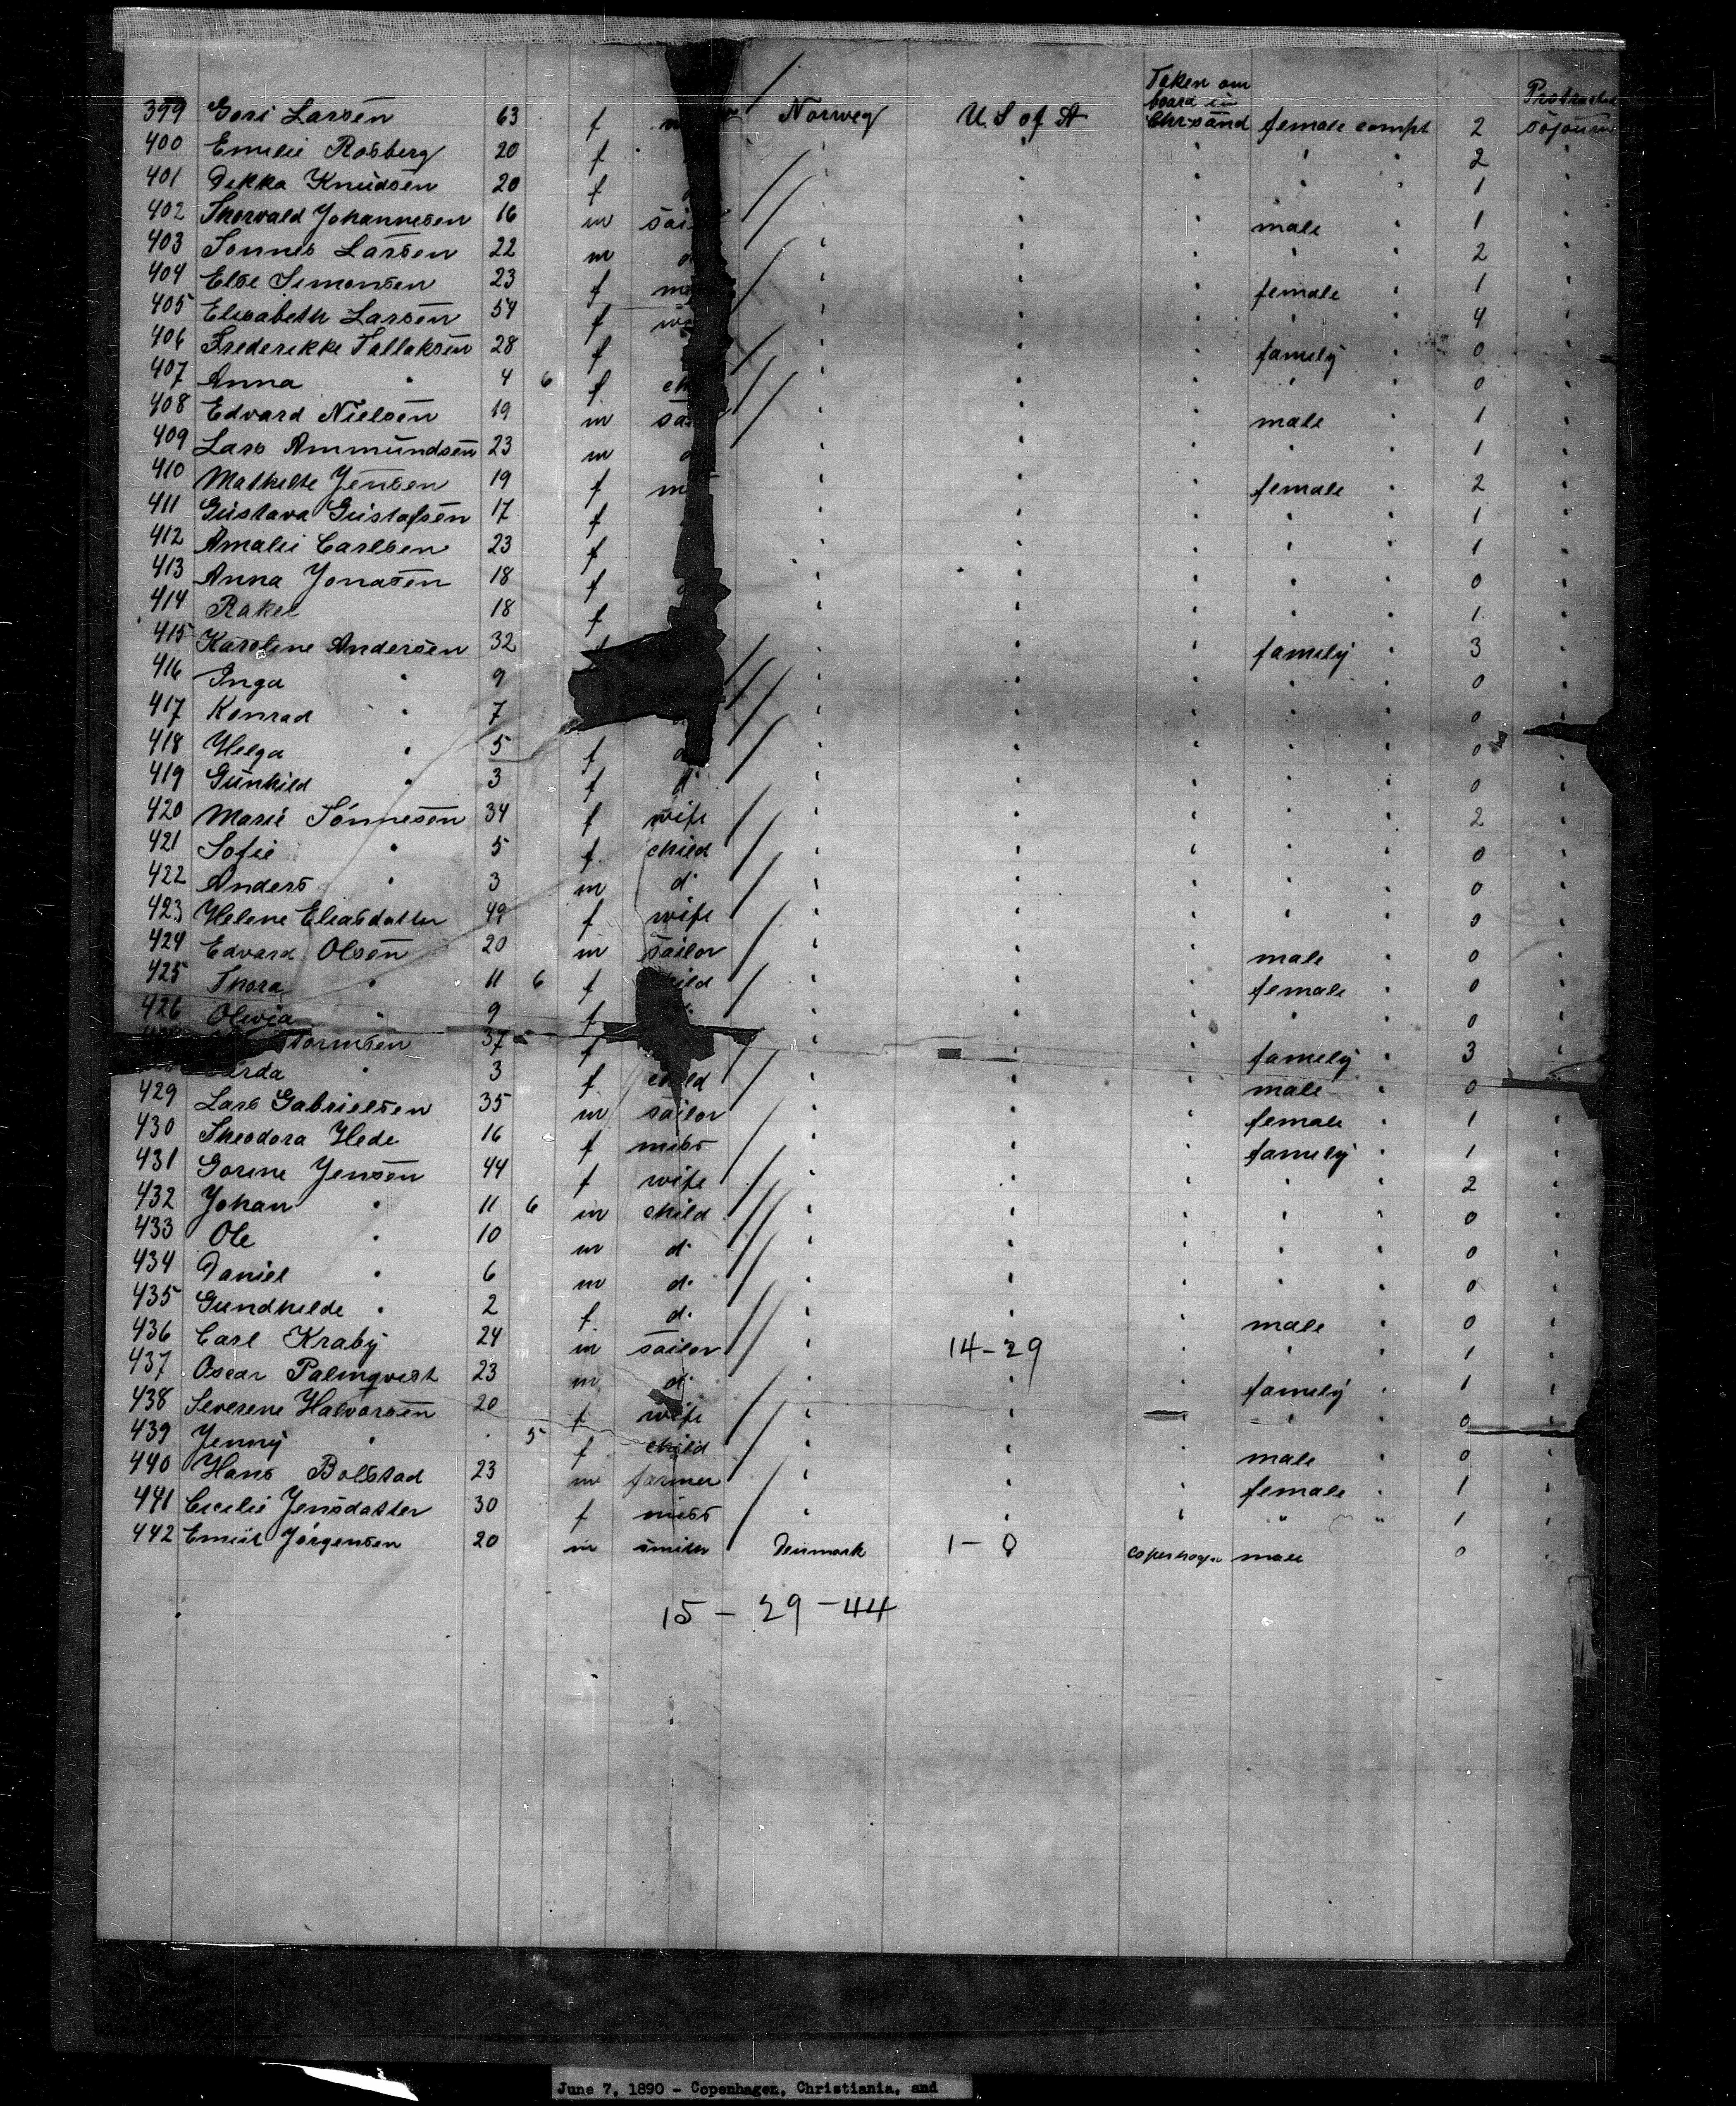 Taken om
board in Protracted
399 Gori Larsen 63 f Norweg U S of A Chrsand female compt 2 sojourn
400 Emilie Rosberg 20 f " " " " " 2 "
401 Dekka Knudsen 20 f " " " " 1 "
402 Thorvald Johannesen 16 m " " " male " 1 "
403 Tonnes Larsen 22 m " " " " " 2 "
404 Else Simonsen 23 f " " " female " 1 "
405 Elisabeth Larsen 54 f " " " " " 4 "
406 Frederikke Tallaksen 28 f " " " family " 0 "
407 Anna " 4 6 f " " " " " 0 "
408 Edvard Nielsen 19 m " " " male " 1 "
409 Lars Ammundsen 23 m " " " " " 1 "
410 Mathilde Jensen 19 f " " " female " 2 "
411 Gustava Gustafsen 17 f " " " " " 1 "
412 Amalie Carlsen 23 f " " " " " 1 "
413 Anna Jonasen 18 f " " " " " 0 "
414 Rakel 18 f " " " " " 1 "
415 Karoline Andersen 32 " " " family " 3 "
416 Inga " 9 " " " " " 0 "
417 Konrad " 7 " " " " " 0 "
418 Helga " 5 f " " " " " 0 "
419 Gunhild " 3 f d. " " " " " 0 "
420 Marie Tönnesen 34 f wife " " " " " 2 "
421 Sofie " 5 f. child " " " " " 0 "
422 Anders " 3 m d. " " " " " 0 "
423 Helene Eliasdatter 49 f wife " " " " " 0 "
424 Edvard Olsen 20 m sailor " " " male " 0 "
425 Thora " 11 6 f " " " female " 0 "
426 Olivia " 9 f " " " " " 0 "
37 f " " " family " 3 "
3 f child " " " male " 0 "
429 Lars Gabrielsen 35 m sailor " " " female " 1 "
430 Theodora Hede 16 f miss " " " family " 1 "
431 Gorine Jensen 44 f wife " " " " " 2 "
432 Johan " 11 6 m child " " " " " 0 "
433 Ole " 10 m d. " " " " " 0 "
434 Daniel " 6 m d. " " " " " 0 "
435 Gundhilde " 2 f. d. " " " male " 0 "
436 Carl Kraby 24 m sailor " 14-29 " " " 1 "
437 Oscar Palmqvist 23 m d. " " " family " 1 "
438 Severene Halvorsen 20 f wife " " " " " 0 "
439 Jenny " . 5 f child " " " male " 0 "
440 Hans Bolstad 23 m farmer " " " female " 1 "
441 Cecilie Jensdatter 30 f miss " " " " " 1 "
442 Emiil Jörgensen 20 m smith Denmark 1-0 Copenhagen male 0 "
15 - 29 - 44
June 7, 1890 - Copenhagen, Christiania, and